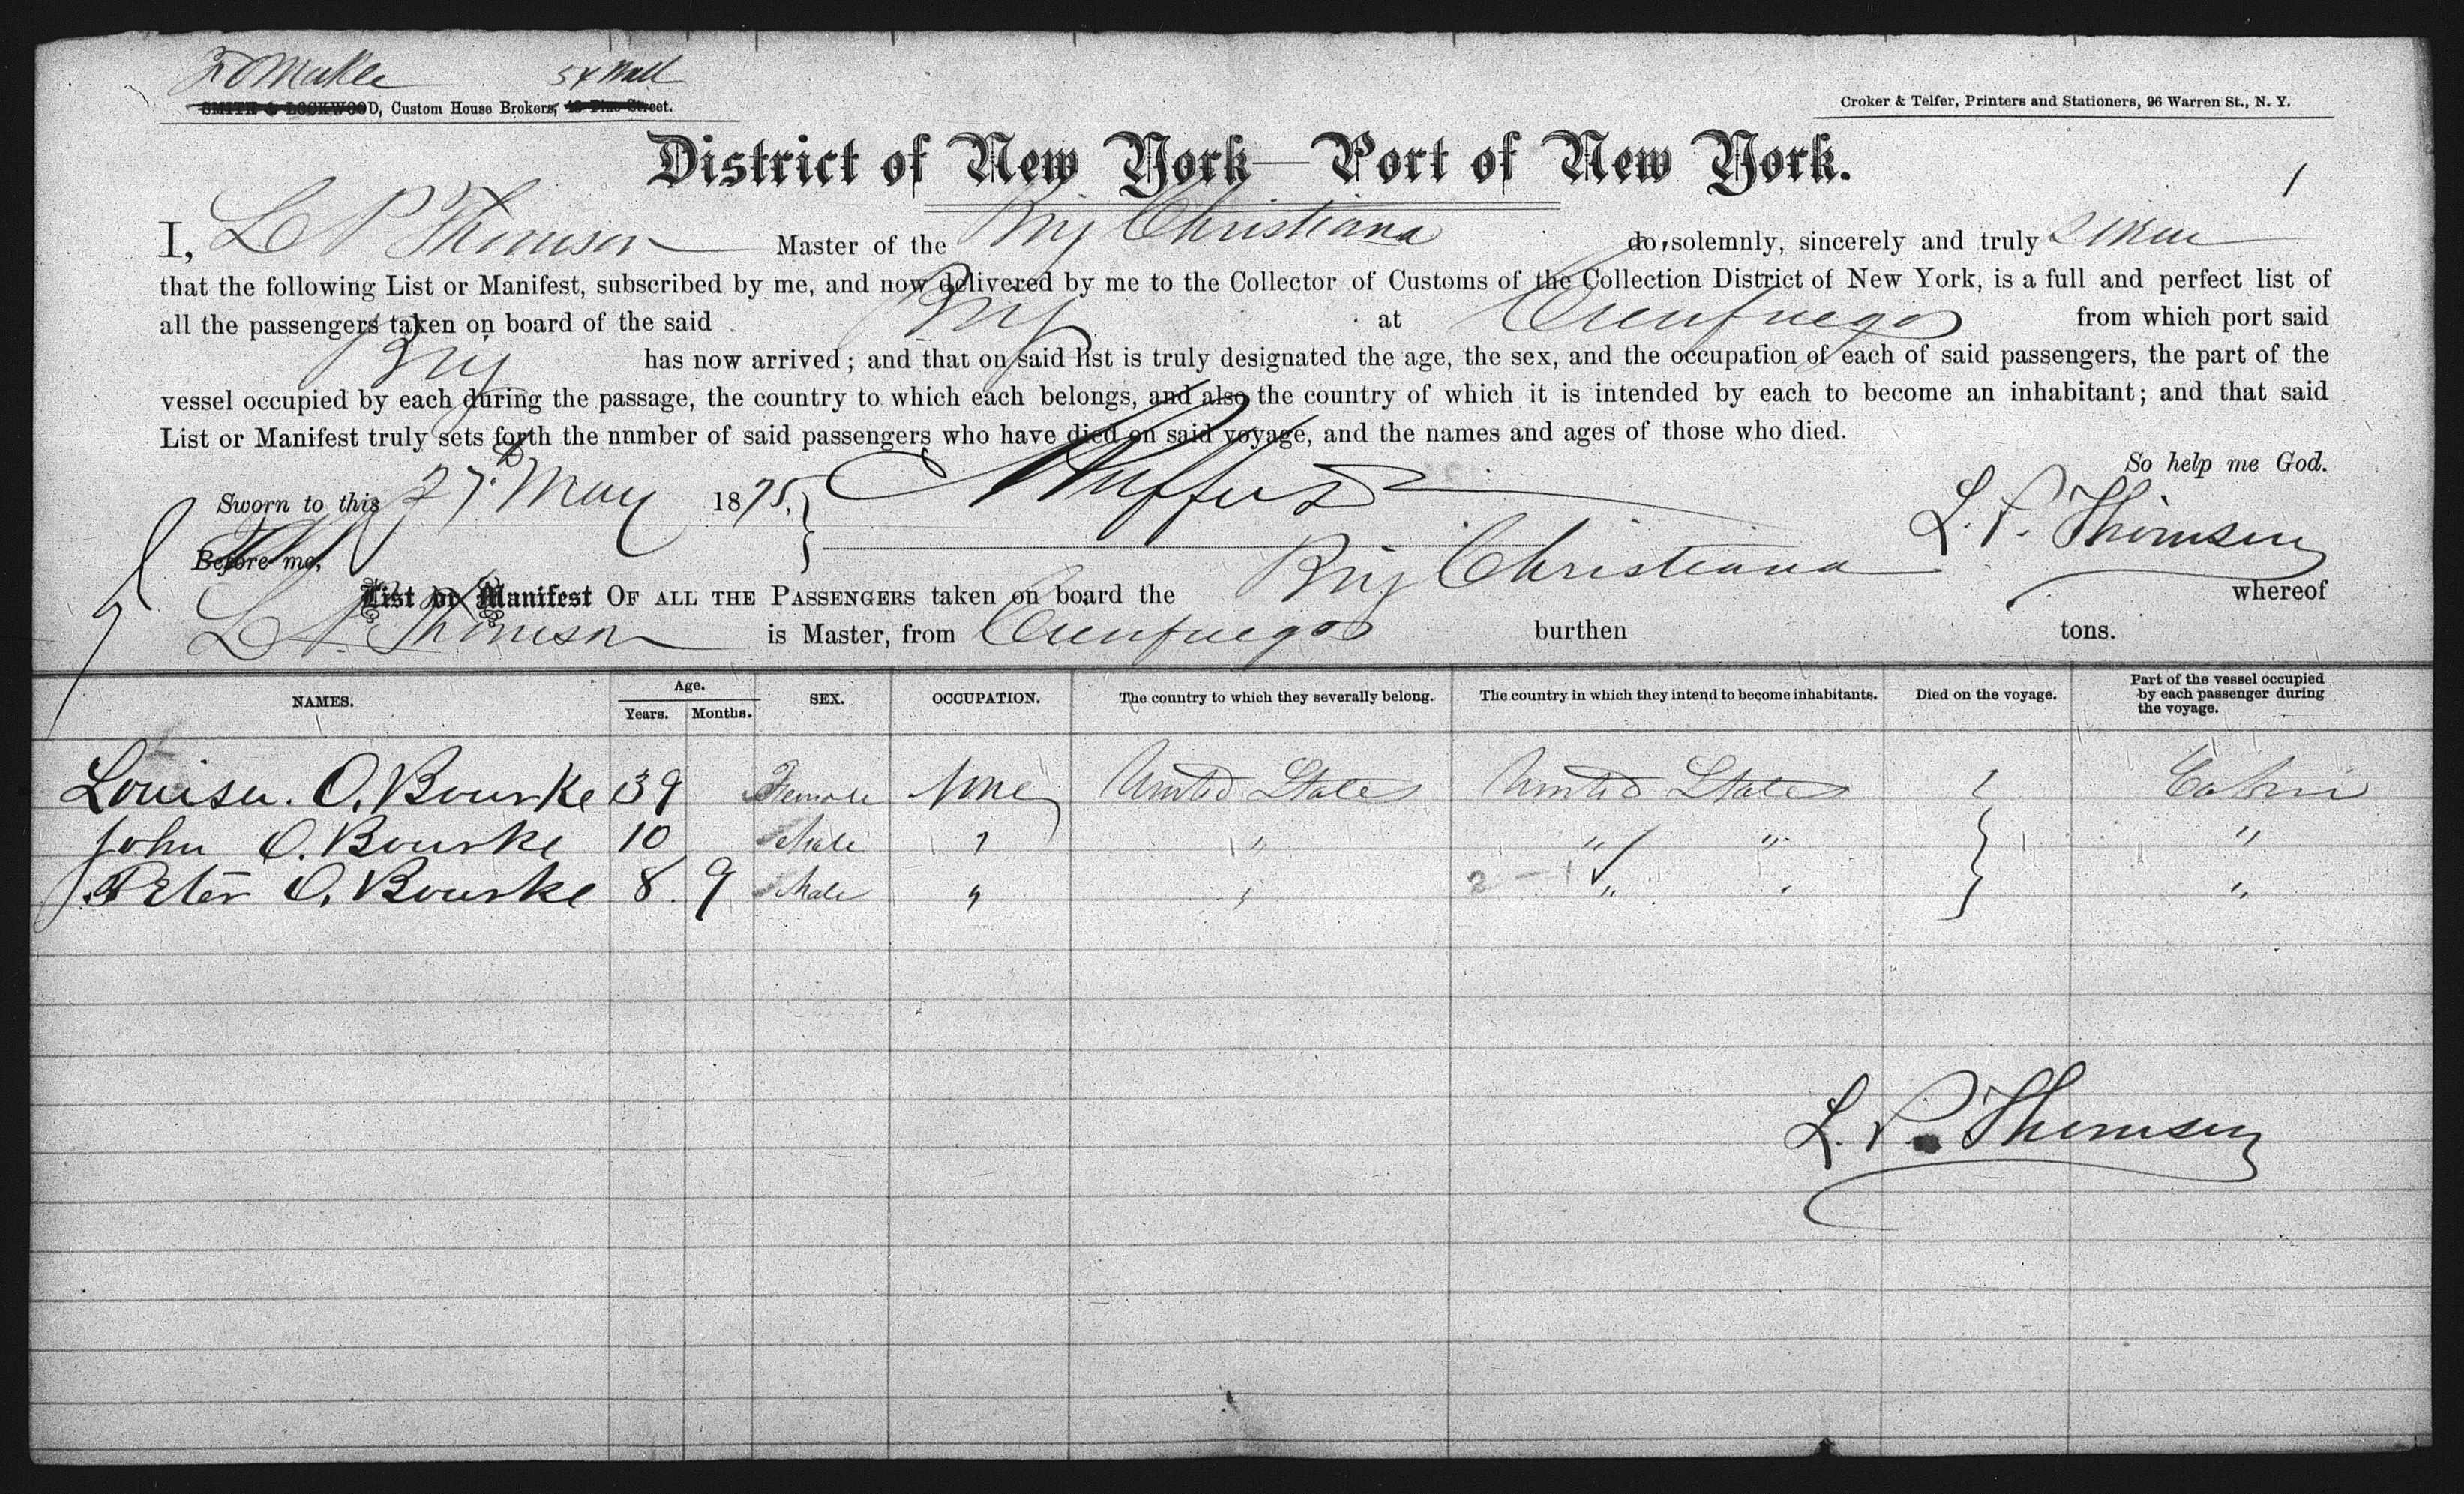 54 Wall
SMITH & LOCKWOOD, Custom House Brokers, 48 Pine Street.
Croker & Telfer, Printers and Stationers, 96 Warren St., N. Y.
District of New York—Port of New York.
1
I, L P Thomson Master of the Brig Christiana do, solemnly, sincerely and truly swear
that the following List or Manifest, subscribed by me, and now delivered by me to the Collector of Customs of the Collection District of New York, is a full and perfect list of
all the passengers taken on board of the said Brig at Cienfuegos from which port said
Brig has now arrived; and that on said list is truly designated the age, the sex, and the occupation of each of said passengers, the part of the
vessel occupied by each during the passage, the country to which each belongs, and also the country of which it is intended by each to become an inhabitant; and that said
List or Manifest truly sets forth the number of said passengers who have died on said voyage, and the names and ages of those who died.
So help me God.
Sworn to this 27th May 1875.
L. P. Thomsen
Before me,
List or Manifest OF ALL THE PASSENGERS taken on board the Brig Christiana whereof
L P. Thomson is Master, from Cienfuegos burthen tons.
NAMES. Age. Years. Months. SEX. OCCUPATION. The country to which they severally belong. The country in which they intend to become inhabitants. Died on the voyage. Part of the vessel occupied by each passenger during the voyage.
Louisa. O. Bourke 39 Female None United States United States Cabin
John O. Bourke 10 Male " " " " "
Peter O. Bourke 8. 9 Male " " " " "
2 - 1
L. P. Thomsen